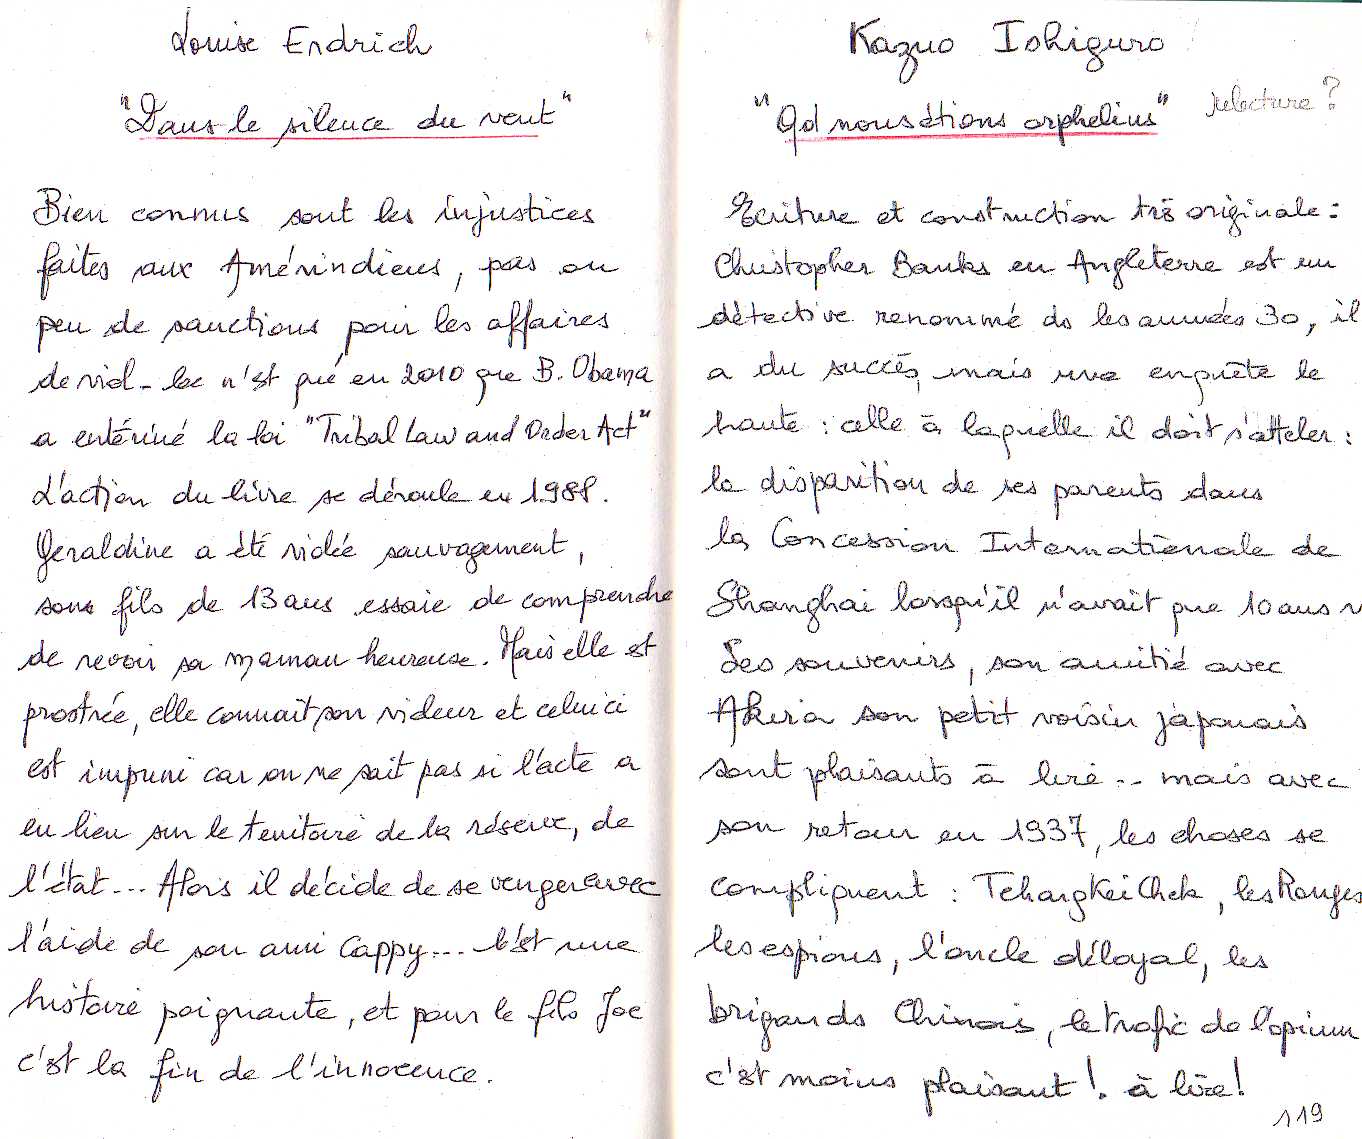 Louise Endrich
"Dans le silence du vent"
Bien connus sont les injustices
faites aux Amérindiens, pas ou
peu de sanctions pour les affaires
de viol - Ce n'est qu'en 2010 que B. Obama
a entériné la loi "Tribal Law and Order Act"
L'action du livre se déroule en 1988.
Geraldine a été violée sauvagement,
son fils de 13 ans essaie de comprendre
de revoir sa maman heureuse. Mais elle est
prostrée, elle connait son violeur et celui ci
est impuni car on ne sait pas si l'acte a
eu lieu sur le territoire de la réserve, de
l'état... Alors il décide de se venger avec
l'aide de son ami Cappy... C'est une
histoire poignante, et pour le fils Joe
c'est la fin de l'innocence.
Kazuo Ishiguro
"Qd nous étions orphelins" relecture ?
Ecriture et construction très originale :
Christopher Banks en Angleterre est un
détective renommé ds les années 30, il
a du succès, mais une enquête le
hante : celle à laquelle il doit s'atteler :
la disparition de ses parents dans
la Concession Internationale de
Shanghai lorsqu'il n'avait que 10 ans
Ses souvenirs, son amitié avec
Akira son petit voisin japonais
sont plaisants à lire... mais avec
son retour en 1937, les choses se
compliquent : TchangKeiChek, les Rouges
les espions, l'oncle déloyal, les
brigands Chinois, le trafic de l'opium
c'est moins plaisant !. à lire !
119